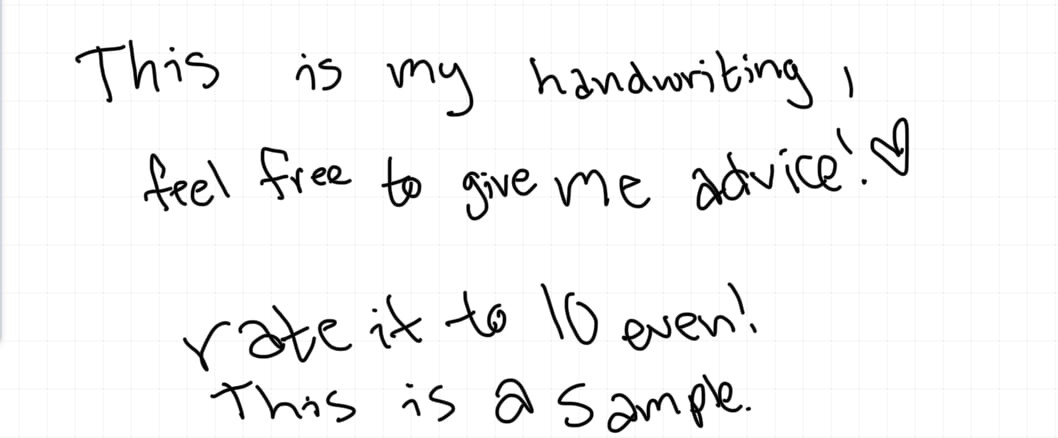 This is my handwriting,
feel free to give me advice!♡
rate it to 10 even!
This is a sample.